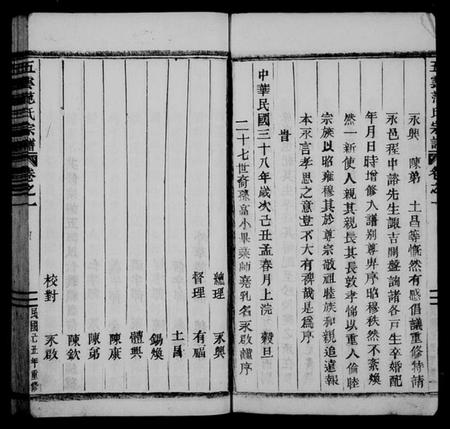 永興 陳弟 土昌等慨然有感倡議重修特請
永邑程中諮先生諏吉開盤詢諸各戶生卒婚配
年月日時增修入譜別尊卑序昭穆秩然不紊煥
然一新使人親其親長其長敦孝悌以重人倫睦
宗族以昭雍穆其於尊宗敬祖睦族和親追遠報
本永言孝思之意豈不大有裨哉是為序
旹
中華民國三十八年歲次己丑孟春月上浣 穀旦
二十七世裔孫富小畢業師堯乳名永啟謹序
總理 永興
督理 有福
土昌
錫煥
體興
陳康
陳弟
陳欽
校對 永啟
五雲范氏宗譜 卷之一
民國己丑年重修